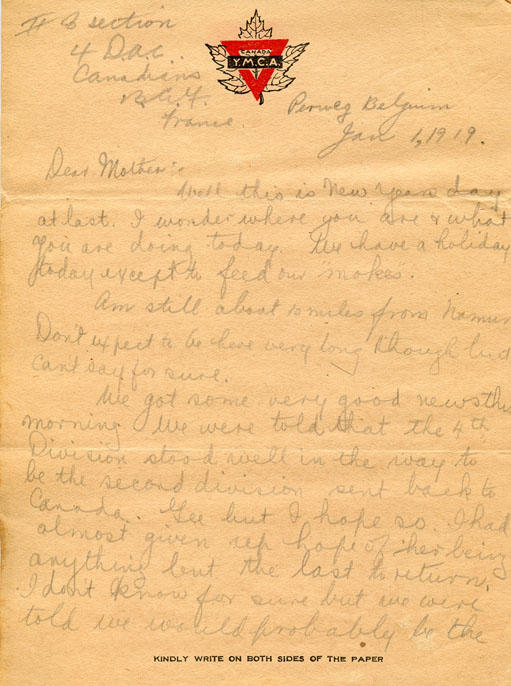 3 section
4 D.A.C.
Canadians
B.E.F.
France.
CANADA
Y.M.C.A.
Perweg Belguim
Jan 1, 1919.
Dear Mother:-
Well this is New Years day
at last. I wonder where you are & what
you are doing today. We have a holiday
today except to feed our mokes.
Am still about 10 miles from Namur
Don't expect to be here very long though but
can't say for sure.
We got some very good news this
morning We were told that the 4th
Division stood well in the way to
be the second division sent back to
Canada. Gee but I hope so. I had
almost given up hope of being
anything but the last to return.
I don't know for sure but we were
told we would probably be the
KINDLY WRITE ON BOTH SIDES OF THE PAPER